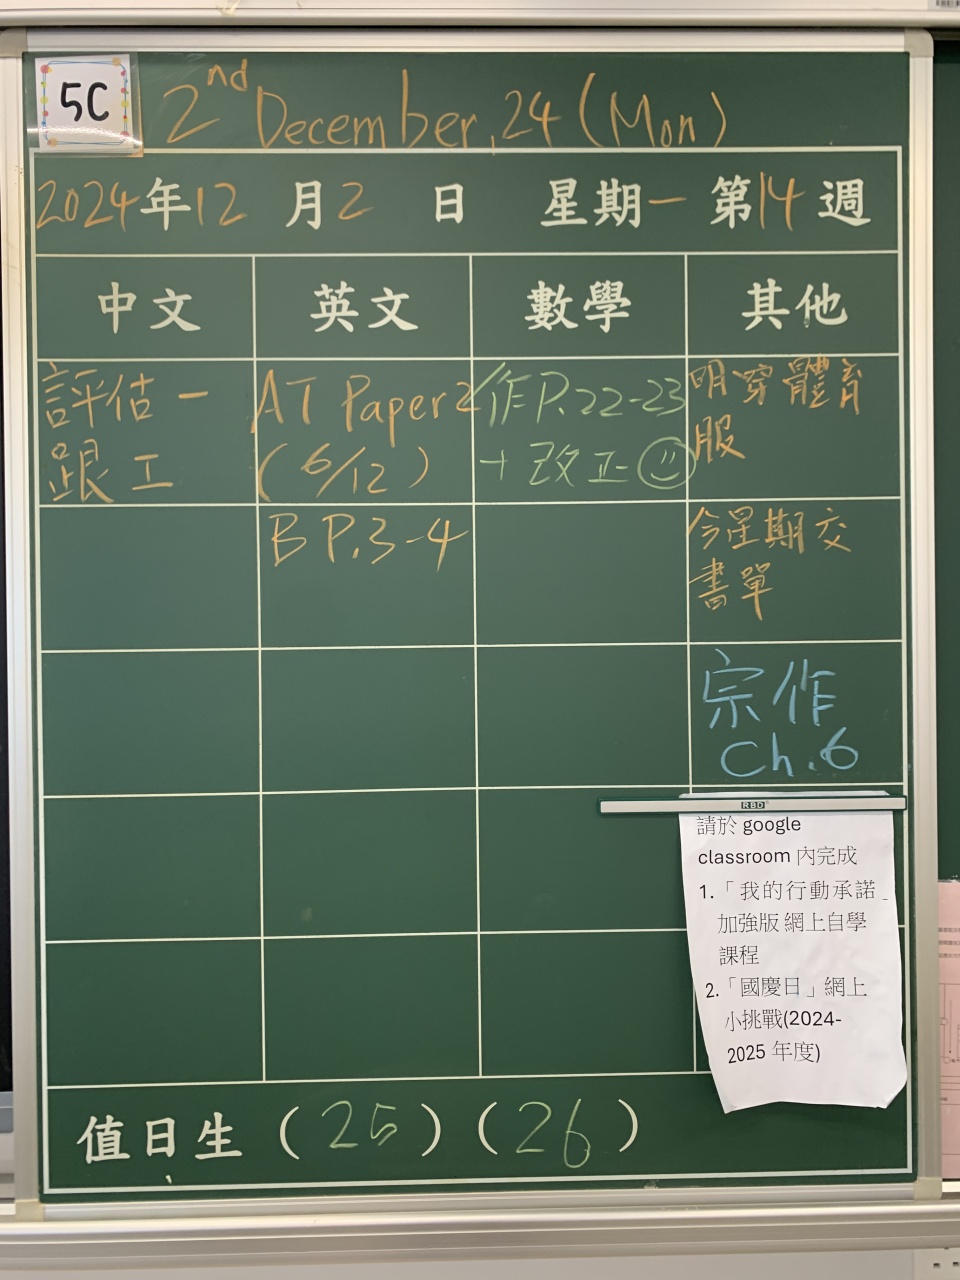 5C
2nd December, 24 (Mon)
2024年12月2日 星期一 第14週
中文 英文 數學 其他
評估一
跟工
AT Paper 2
(6/12)
B P.3-4
作P.22-23
+改正
明穿體育
服
今星期交
書單
宗作
Ch.6
RBD
請於 google
classroom 內完成
1.「我的行動承諾
加強版 網上自學
課程
2.「國慶日」網上
小挑戰(2024-
2025 年度)
值日生 (25) (26)